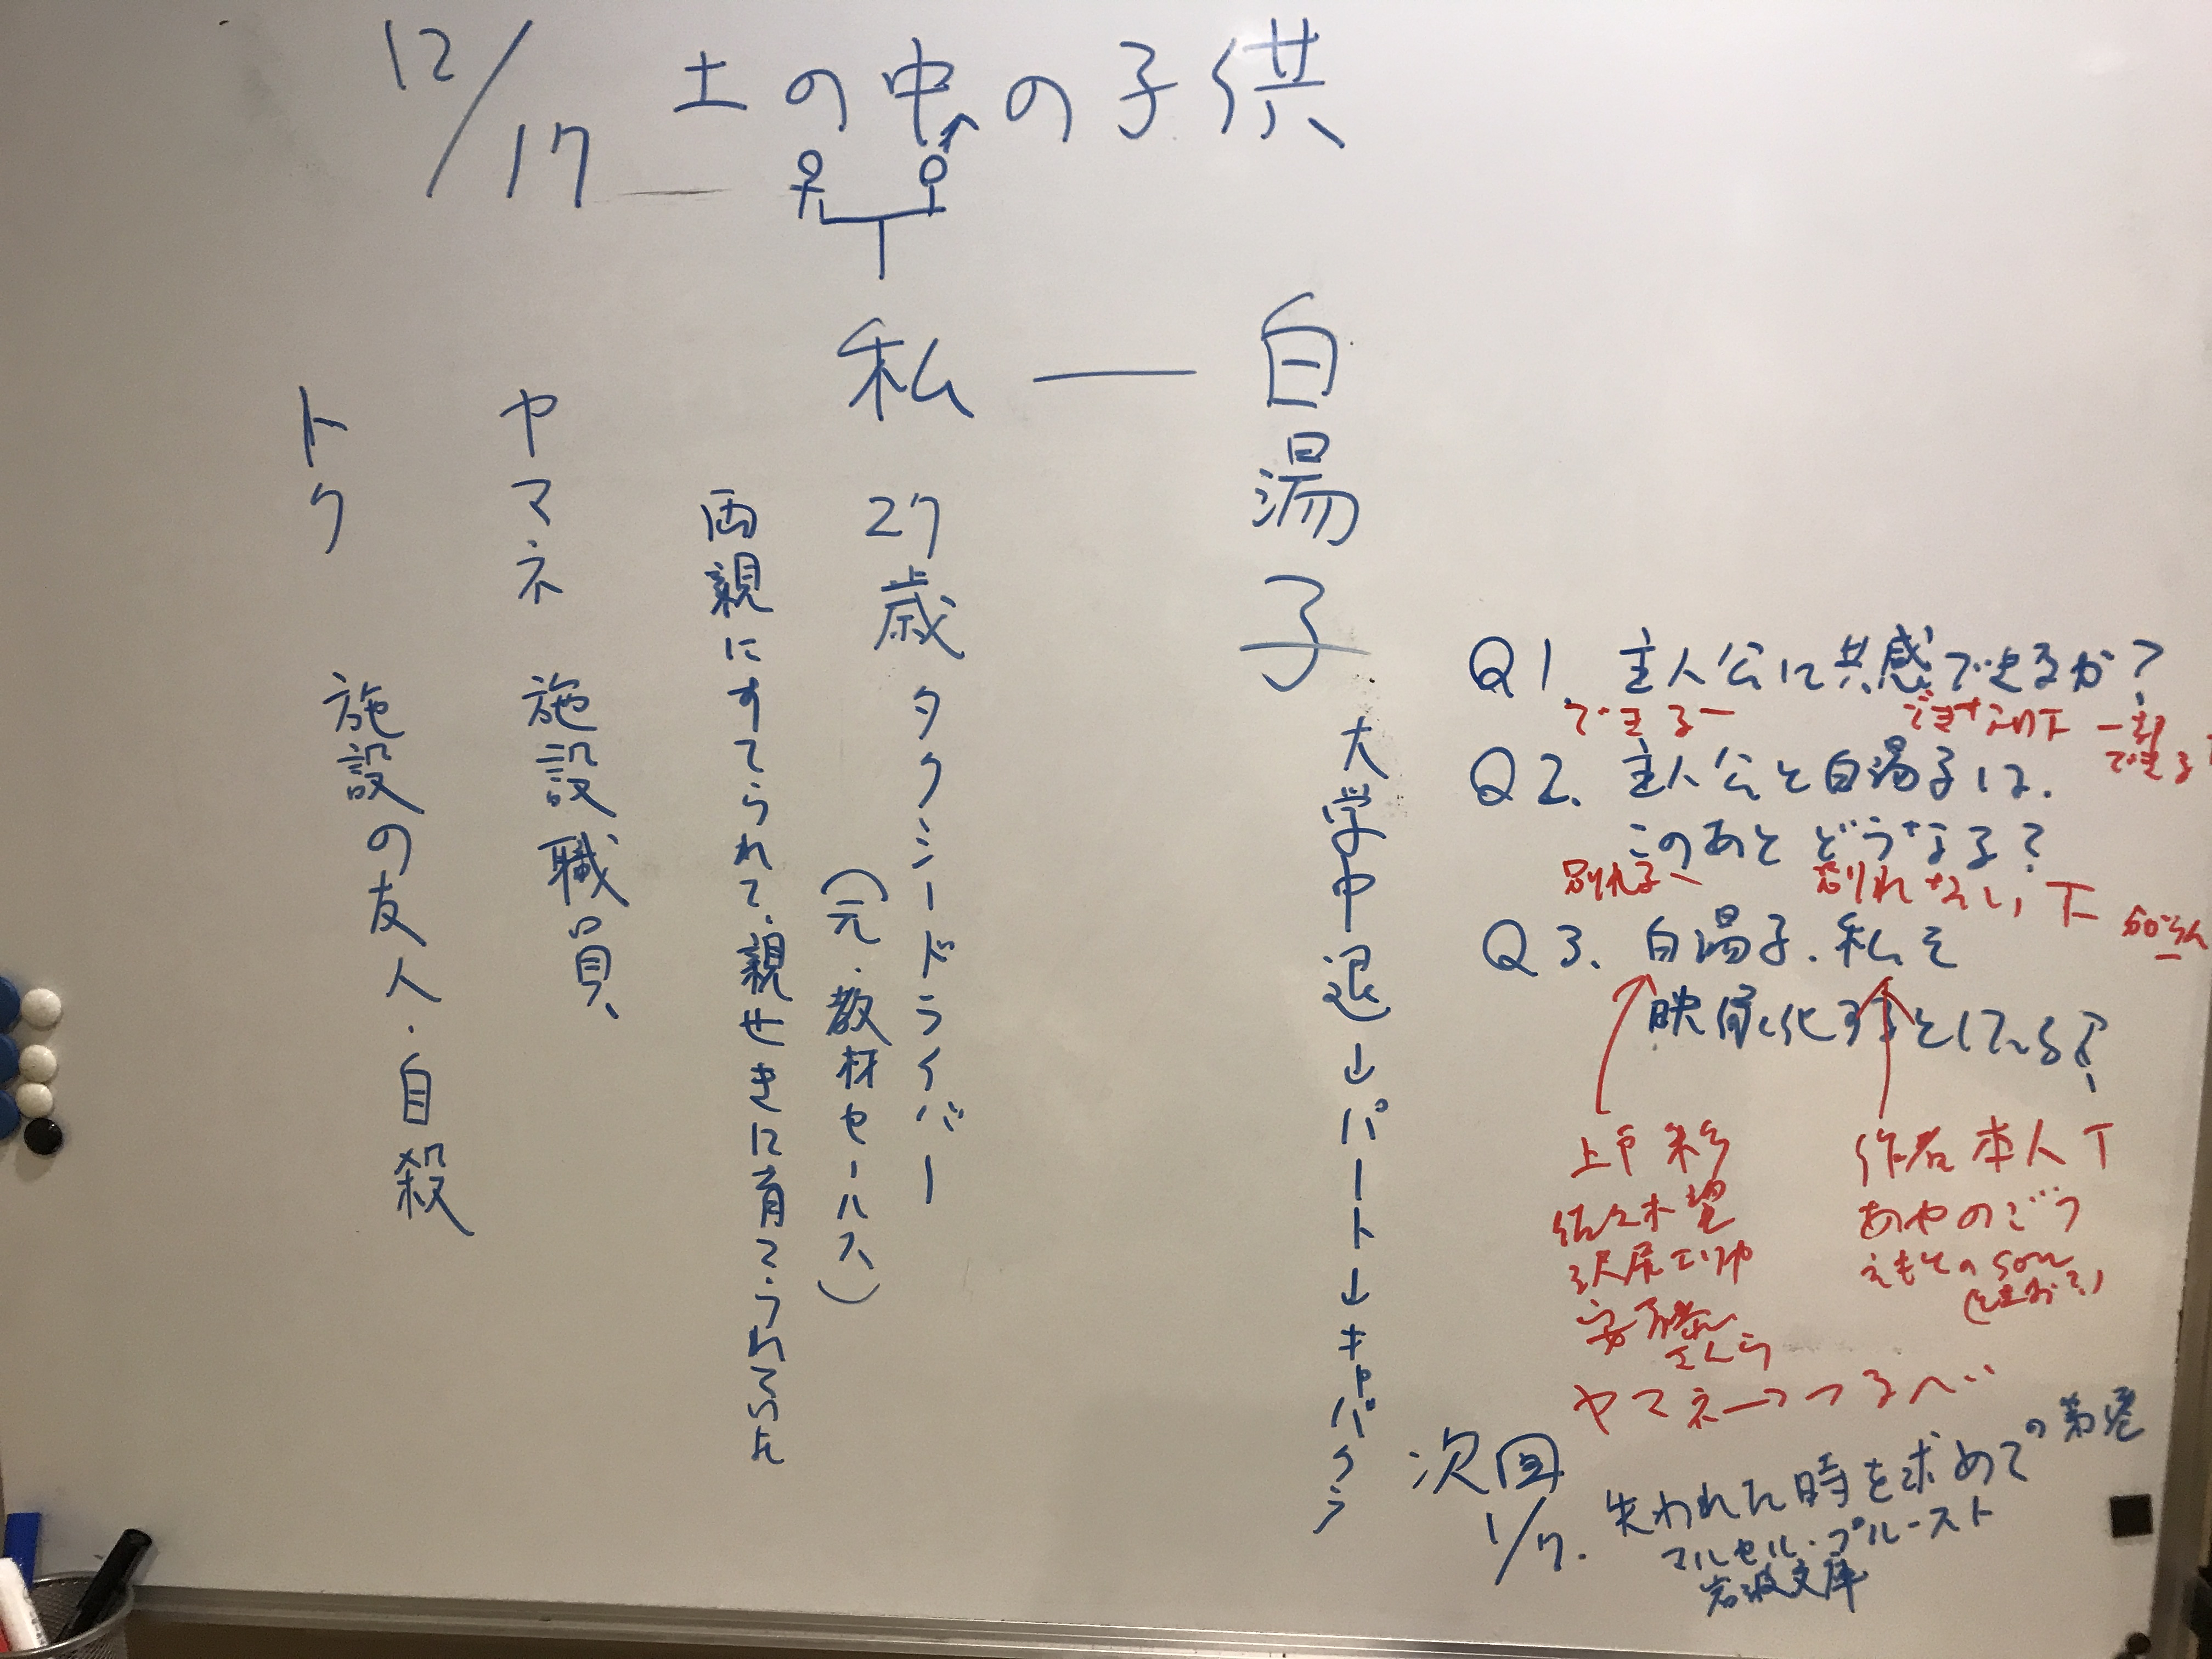 12/17 土の中の子供
私 — 白湯子
大学中退→パート→キャバクラ
27歳 タクシードライバー
(元・教材セールス)
両親にすてられて、親せきに育てられ
ヤマネ 施設職員
トク 施設の友人・自殺
Q1. 主人公に共感できるか?
できる一
一部
できる
Q2. 主人公と白湯子は、
このあと どうなる?
別れる一
別れない 下
Q3. 白湯子・私を
映像化するとしたら?
上戸彩
佐々木望
沢尻エリカ
安藤
さくら
作者本人 T
あやのごう
えもとのson
ヤマネ→つるべ
次回
1/7. 失われた時を求めて の第一巻
マルセル・プルースト
岩波文庫